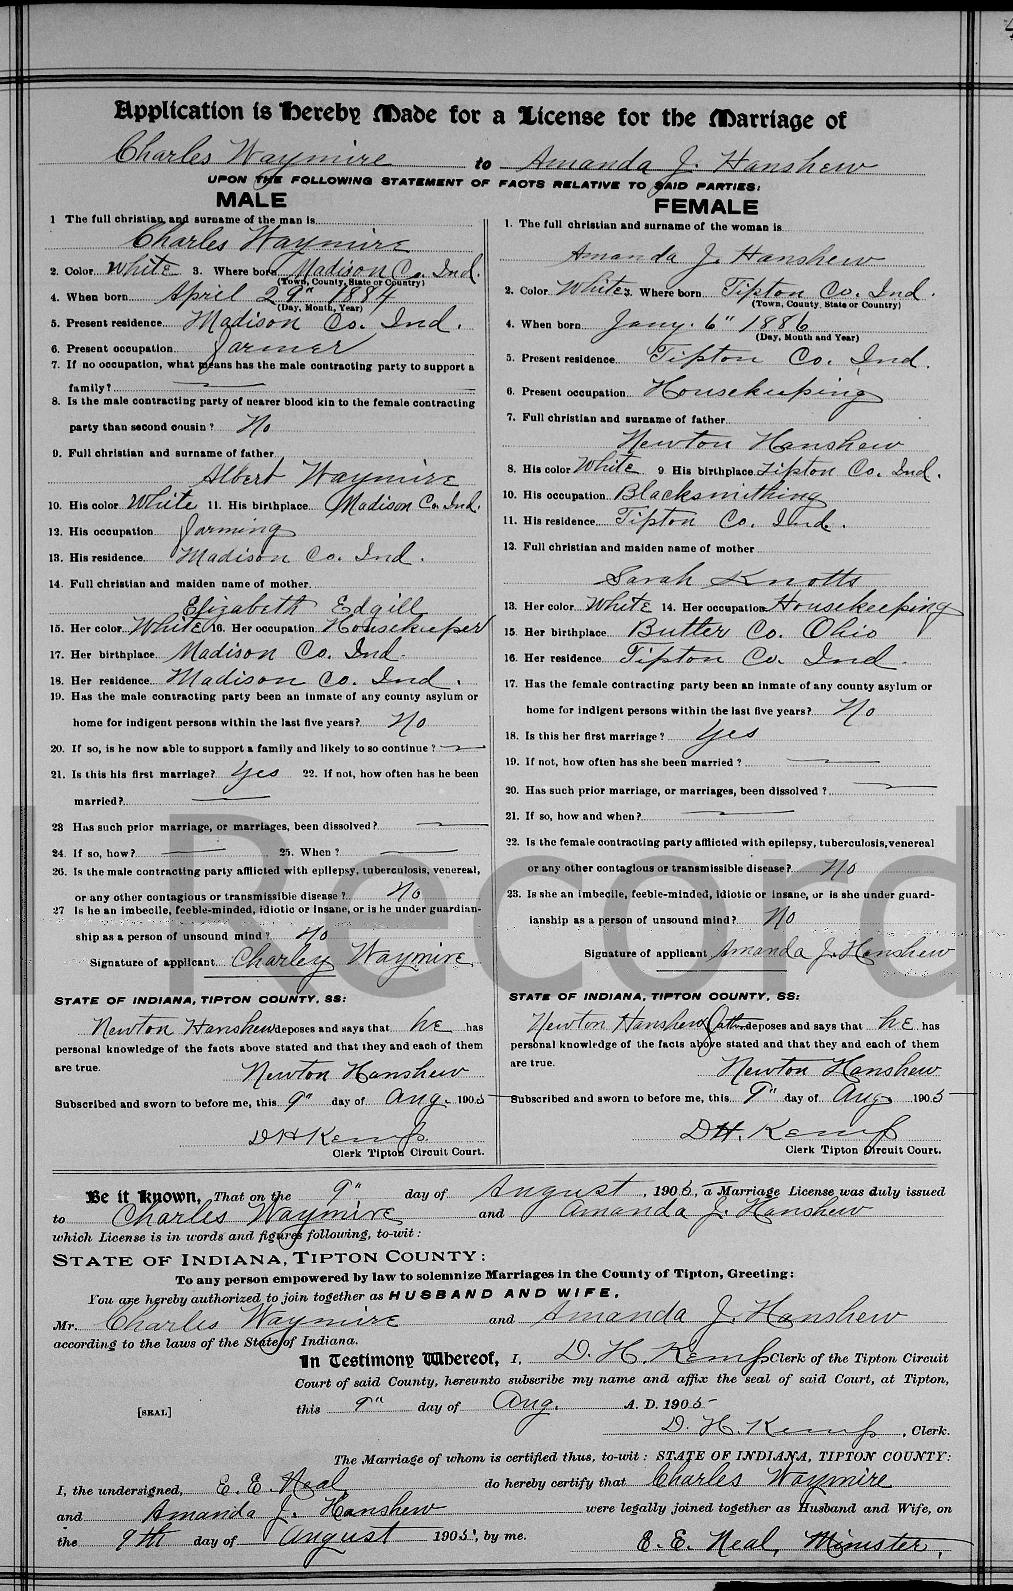 Application is Hereby Made for a License for the Marriage of
Charles Waymire to Amanda J. Hanshew
UPON THE FOLLOWING STATEMENT OF FACTS RELATIVE TO SAID PARTIES:
MALE
1 The full christian and surname of the man is
Charles Waymire
2. Color White 3. Where born Madison Co. Ind.
(Town, County, State or Country)
4. When born April 29" 1884
(Day, Month, Year)
5. Present residence Madison Co. Ind.
6. Present occupation Farmer
7. If no occupation, what means has the male contracting party to support a
family?
8. Is the male contracting party of nearer blood kin to the female contracting
party than second cousin? No
9. Full christian and surname of father
Albert Waymire
10. His color White 11. His birthplace Madison Co. Ind.
12. His occupation Farming
13. His residence Madison Co. Ind.
14. Full christian and maiden name of mother
Elizabeth Edgill
15. Her color White 16. Her occupation Housekeeper
17. Her birthplace Madison Co. Ind
18. Her residence Madison Co. Ind.
19. Has the male contracting party been an inmate of any county asylum or
home for indigent persons within the last five years? No
20. If so, is he now able to support a family and likely to so continue?
21. Is this his first marriage? Yes 22. If not, how often has he been
married?
23 Has such prior marriage, or marriages, been dissolved?
24. If so, how? 25. When?
26. Is the male contracting party afflicted with epilepsy, tuberculosis, venereal,
or any other contagious or transmissible disease? No
27 Is he an imbecile, feeble-minded, idiotic or insane, or is he under guardian-
ship as a person of unsound mind? No
Signature of applicant Charley Waymire
STATE OF INDIANA, TIPTON COUNTY, SS:
Newton Hanshew deposes and says that he has
personal knowledge of the facts above stated and that they and each of them
are true.
Newton Hanshew
Subscribed and sworn to before me, this 9" day of Aug. 1905
D H Kemp
Clerk Tipton Circuit Court.
FEMALE
1. The full christian and surname of the woman is
Amanda J. Hanshew
2. Color White 3. Where born Tipton Co. Ind.
(Town, County, State or Country)
4. When born Jany. 6" 1886
(Day, Month and Year)
5. Present residence Tipton Co. Ind.
6. Present occupation Housekeeping
7. Full christian and surname of father
Newton Hanshew
8. His color White 9. His birthplace Tipton Co. Ind.
10. His occupation Blacksmithing
11. His residence Tipton Co. Ind.
12. Full christian and maiden name of mother
Sarah Knotts
13. Her color White 14. Her occupation Housekeeping
15. Her birthplace Butler Co. Ohio
16. Her residence Tipton Co. Ind.
17. Has the female contracting party been an inmate of any county asylum or
home for indigent persons within the last five years? No
18. Is this her first marriage? Yes
19. If not, how often has she been married?
20. Has such prior marriage, or marriages, been dissolved?
21. If so, how and when?
22. Is the female contracting party afflicted with epilepsy, tuberculosis, venereal
or any other contagious or transmissible disease? No
23. Is she an imbecile, feeble-minded, idiotic or insane, or is she under guard-
ianship as a person of unsound mind? No
Signature of applicant Amanda J. Hanshew
STATE OF INDIANA, TIPTON COUNTY, SS:
Newton Hanshew father deposes and says that he has
personal knowledge of the facts above stated and that they and each of them
are true.
Newton Hanshew
Subscribed and sworn to before me, this 9" day of Aug 1905
D H. Kemp
Clerk Tipton Circuit Court.
Be it Known, That on the 9" day of August, 1905, a Marriage License was duly issued
to Charles Waymire and Amanda J. Hanshew
which License is in words and figures following, to-wit:
STATE OF INDIANA, TIPTON COUNTY:
To any person empowered by law to solemnize Marriages in the County of Tipton, Greeting:
You are hereby authorized to join together as HUSBAND AND WIFE,
Mr. Charles Waymire and Amanda J. Hanshew
according to the laws of the State of Indiana.
In Testimony Whereof, I, D. H. Kemp Clerk of the Tipton Circuit
Court of said County, hereunto subscribe my name and affix the seal of said Court, at Tipton,
[SEAL] this 9" day of Aug. A. D. 1905
D. H. Kemp, Clerk.
The Marriage of whom is certified thus, to-wit: STATE OF INDIANA, TIPTON COUNTY:
I, the undersigned, E. E. Neal do hereby certify that Charles Waymire
and Amanda J. Hanshew were legally joined together as Husband and Wife, on
the 9th day of August 1905, by me. E. E. Neal, Minister,
Record